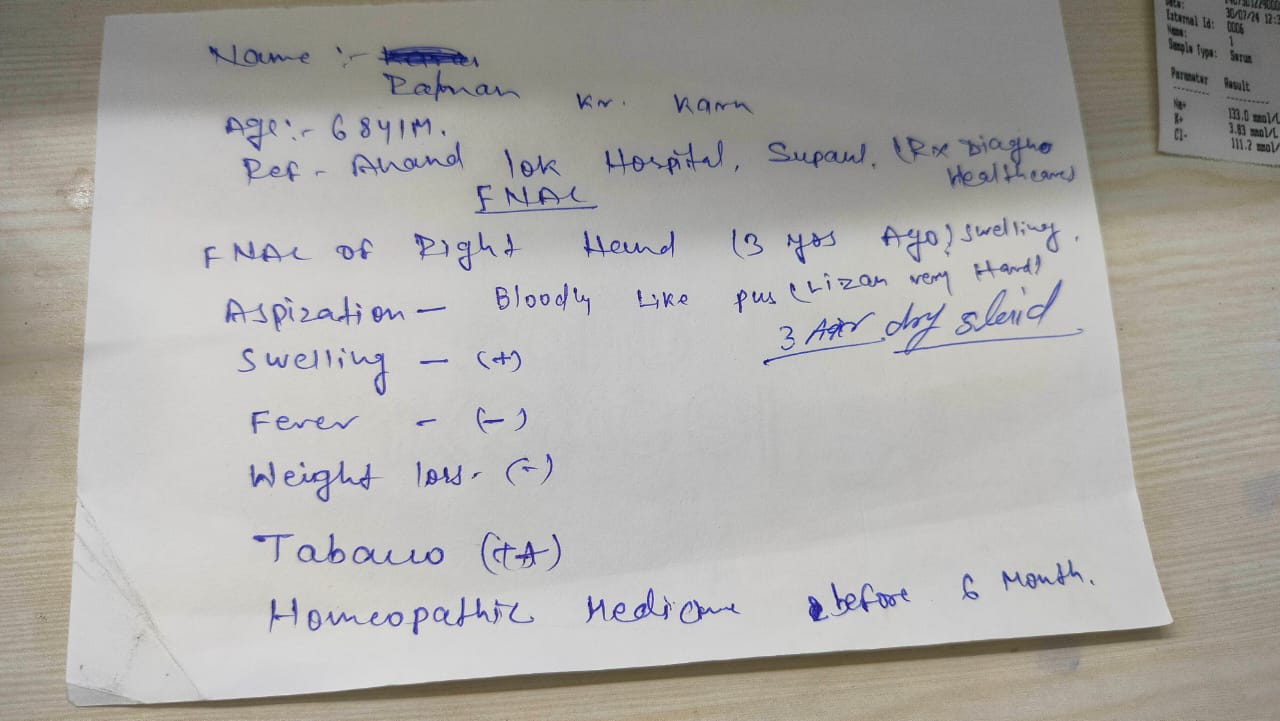 Name :-
Ratnan Kr. Karn
Age:- 68y/M.
Ref - Anand lok Hospital, Supaul. (Rx Diagno
Healthcare)
FNAC
FNAC of Right Hand (3 yrs Ago) swelling.
Aspiration - Bloodly Like pus ( very Hard)
3 Air dry slaid
Swelling - (+)
Fever - (-)
Weight loss - (-)
Tabacco (+)
Homeopathic Medicine before 6 Month.
External Id: 30/07/24 12:3
Name: 0006
1
Sample Type: Serum
Parameter Result
Na+ 133.0 mmol/L
K+ 3.83 mmol/L
Cl- 111.2 mmol/